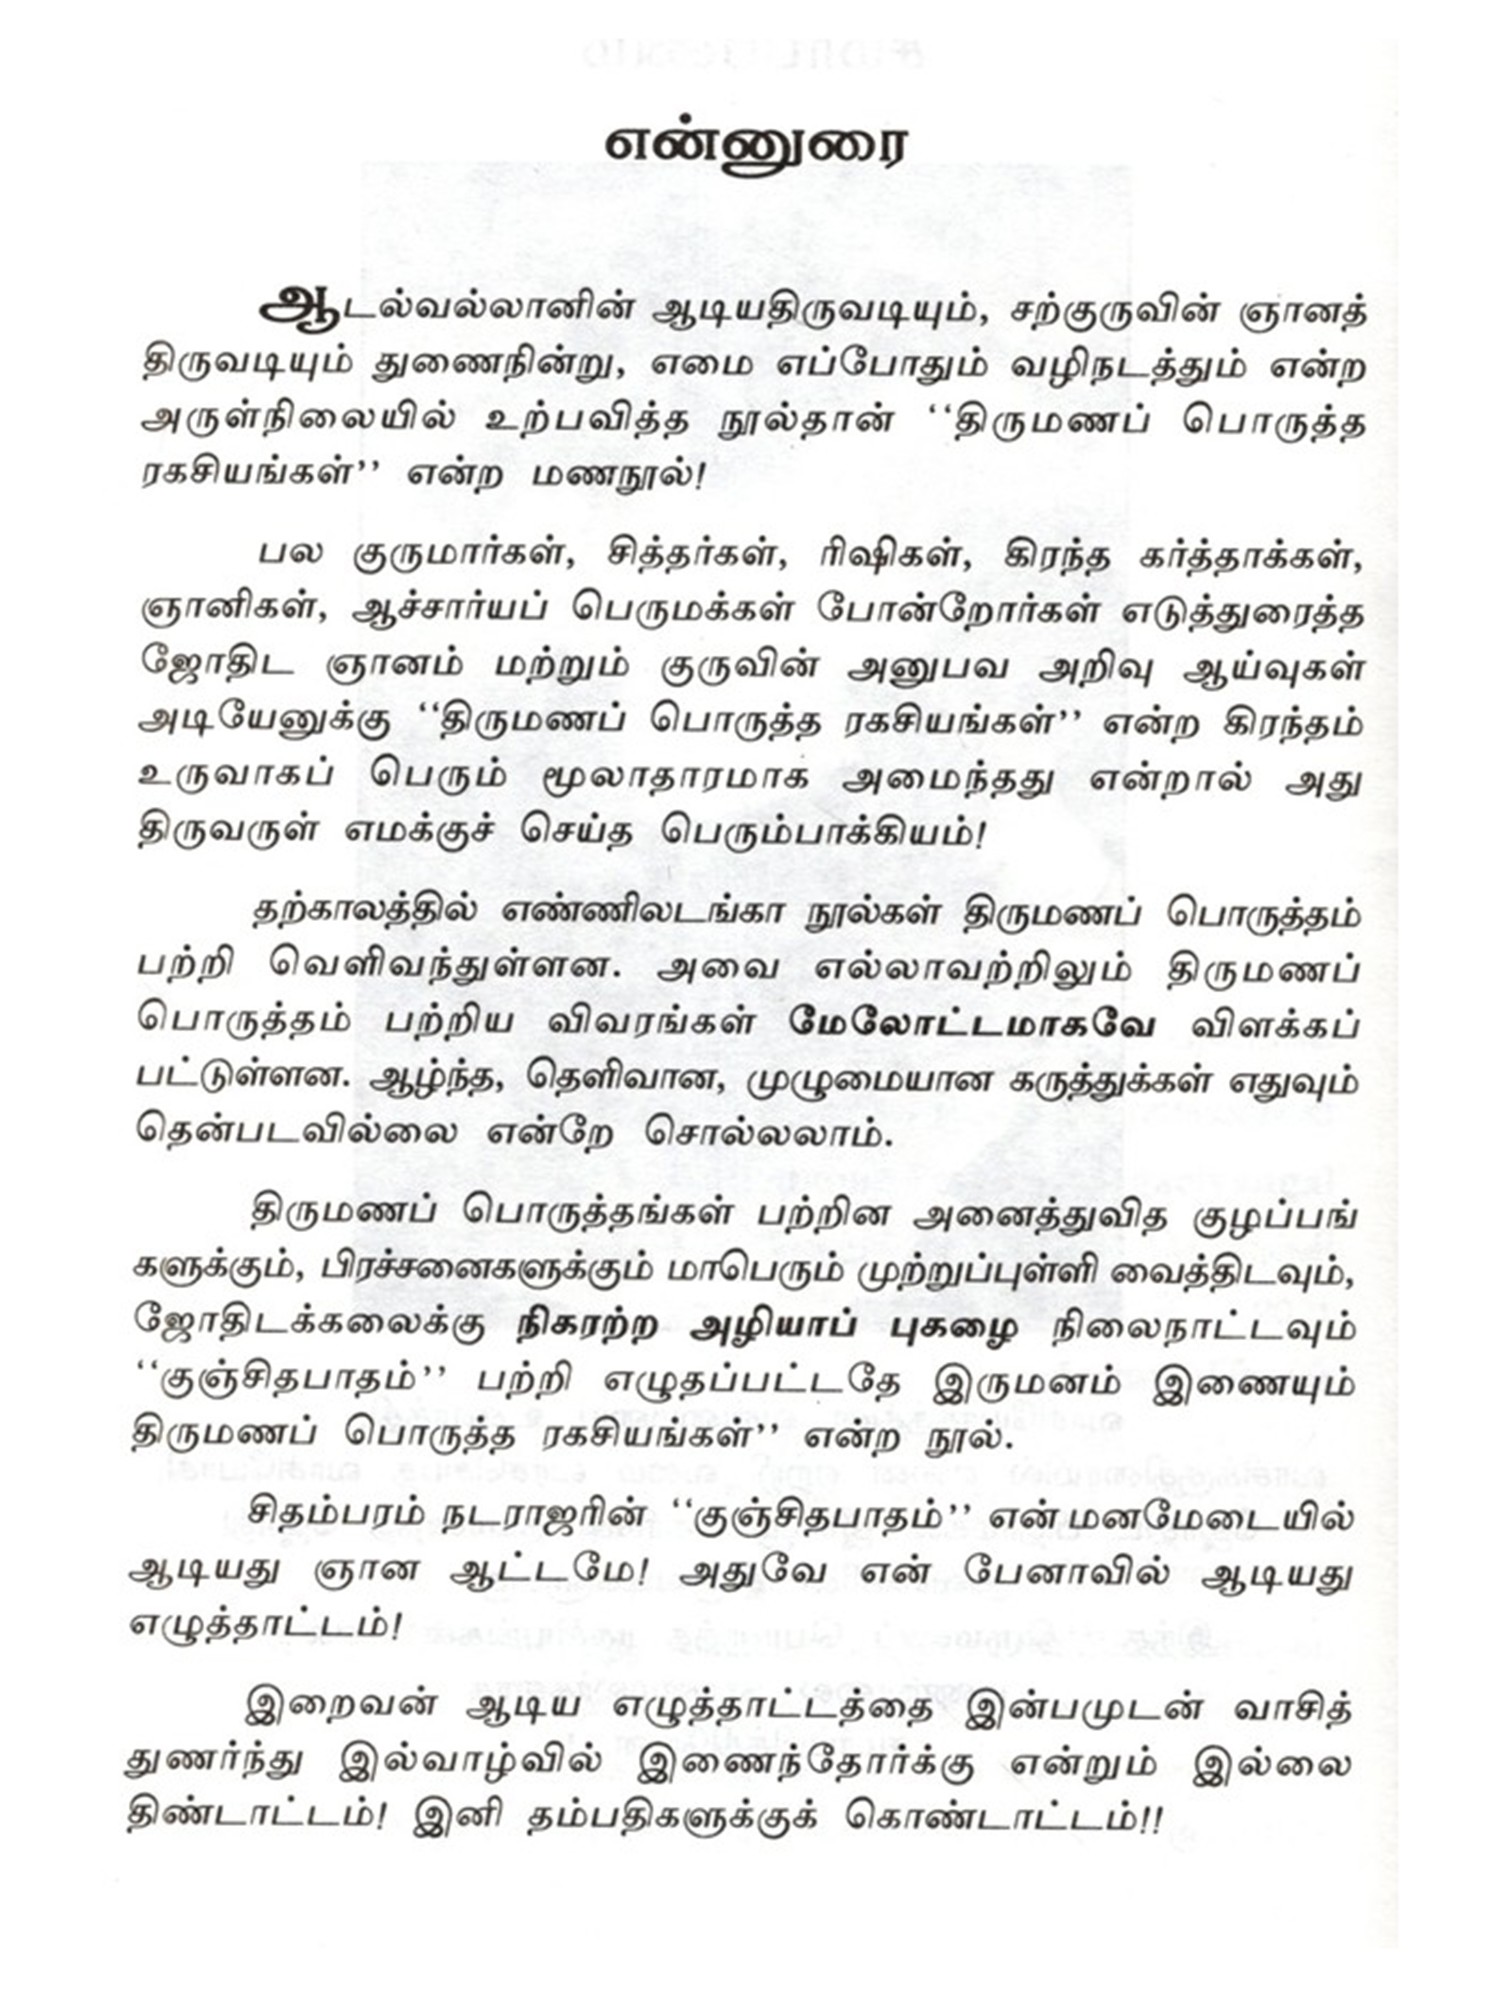 என்னுரை
ஆடல்வல்லானின் ஆடியதிருவடியும், சற்குருவின் ஞானத்
திருவடியும் துணைநின்று, எமை எப்போதும் வழிநடத்தும் என்ற
அருள்நிலையில் உற்பவித்த நூல்தான் ‘‘திருமணப் பொருத்த
ரகசியங்கள்’’ என்ற மணநூல்!
பல குருமார்கள், சித்தர்கள், ரிஷிகள், கிரந்த கர்த்தாக்கள்,
ஞானிகள், ஆச்சார்யப் பெருமக்கள் போன்றோர்கள் எடுத்துரைத்த
ஜோதிட ஞானம் மற்றும் குருவின் அனுபவ அறிவு ஆய்வுகள்
அடியேனுக்கு ‘‘திருமணப் பொருத்த ரகசியங்கள்’’ என்ற கிரந்தம்
உருவாகப் பெரும் மூலாதாரமாக அமைந்தது என்றால் அது
திருவருள் எமக்குச் செய்த பெரும்பாக்கியம்!
தற்காலத்தில் எண்ணிலடங்கா நூல்கள் திருமணப் பொருத்தம்
பற்றி வெளிவந்துள்ளன. அவை எல்லாவற்றிலும் திருமணப்
பொருத்தம் பற்றிய விவரங்கள் மேலோட்டமாகவே விளக்கப்
பட்டுள்ளன. ஆழ்ந்த, தெளிவான, முழுமையான கருத்துக்கள் எதுவும்
தென்படவில்லை என்றே சொல்லலாம்.
திருமணப் பொருத்தங்கள் பற்றின அனைத்துவித குழப்பங்
களுக்கும், பிரச்சனைகளுக்கும் மாபெரும் முற்றுப்புள்ளி வைத்திடவும்,
ஜோதிடக்கலைக்கு நிகரற்ற அழியாப் புகழை நிலைநாட்டவும்
‘‘குஞ்சிதபாதம்’’ பற்றி எழுதப்பட்டதே இருமனம் இணையும்
திருமணப் பொருத்த ரகசியங்கள்’’ என்ற நூல்.
சிதம்பரம் நடராஜரின் ‘‘குஞ்சிதபாதம்’’ என் மனமேடையில்
ஆடியது ஞான ஆட்டமே! அதுவே என் பேனாவில் ஆடியது
எழுத்தாட்டம்!
இறைவன் ஆடிய எழுத்தாட்டத்தை இன்பமுடன் வாசித்
துணர்ந்து இல்வாழ்வில் இணைந்தோர்க்கு என்றும் இல்லை
திண்டாட்டம்! இனி தம்பதிகளுக்குக் கொண்டாட்டம்!!